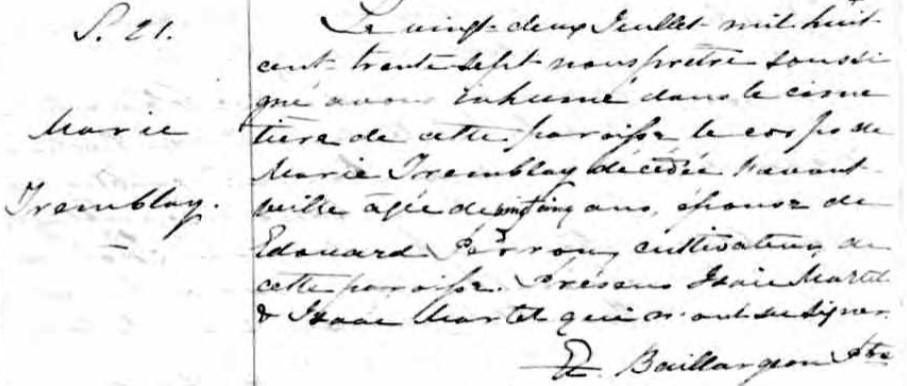 S. 21.
Marie
Tremblay.
Le vingt-deux Juillet mil huit
cent-trente-sept nous prêtre soussi
gné avons inhumé dans le cime
tière de cette paroisse le corps de
Marie Tremblay décédée l'avant
veille âgée de vingt cinq ans, épouse de
Edouard Perron, cultivateur de
cette paroisse. Présens Isaïe Martel
& Isaac Martel qui n'ont su signer.
Baillargeon Ptre